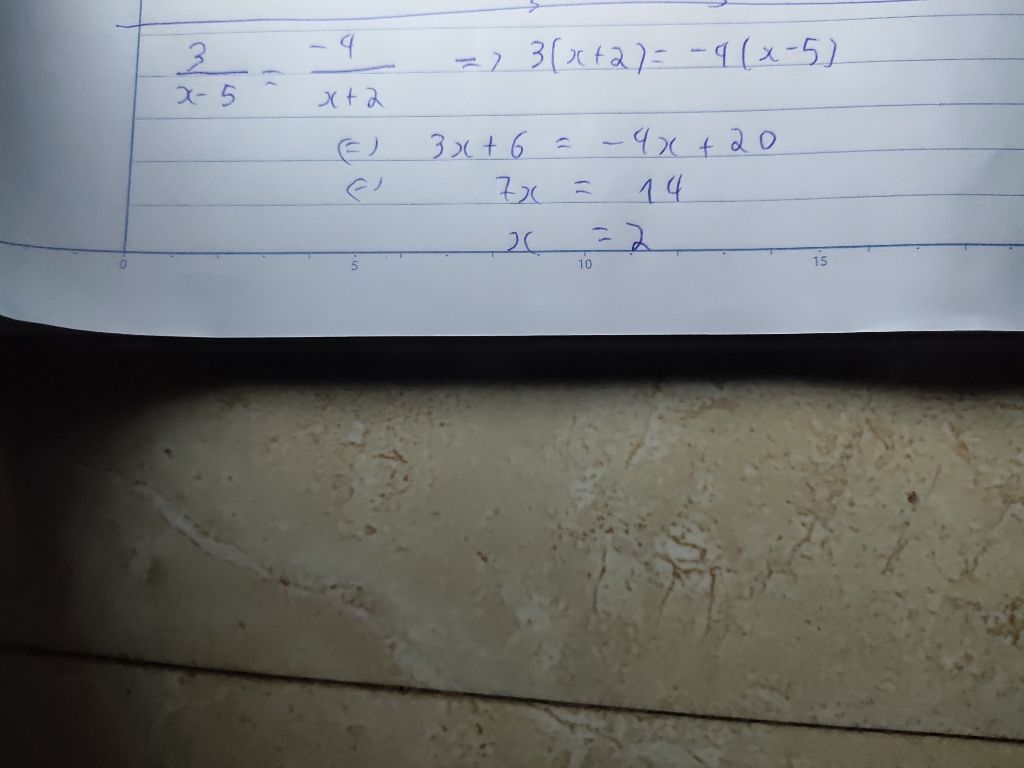 3/(x-5) = -4/(x+2) => 3(x+2) = -4(x-5)
(=) 3x+6 = -4x+20
(=) 7x = 14
x = 2
0 5 10 15